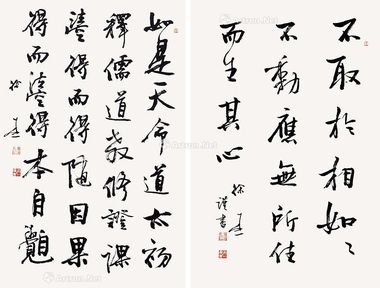 不取於相如々
不動應無所住
而生其心
徐 謹書
如是天命道太初
釋儒道教修證課
得而得隨因果
得而 得本自
徐
Artron.Net